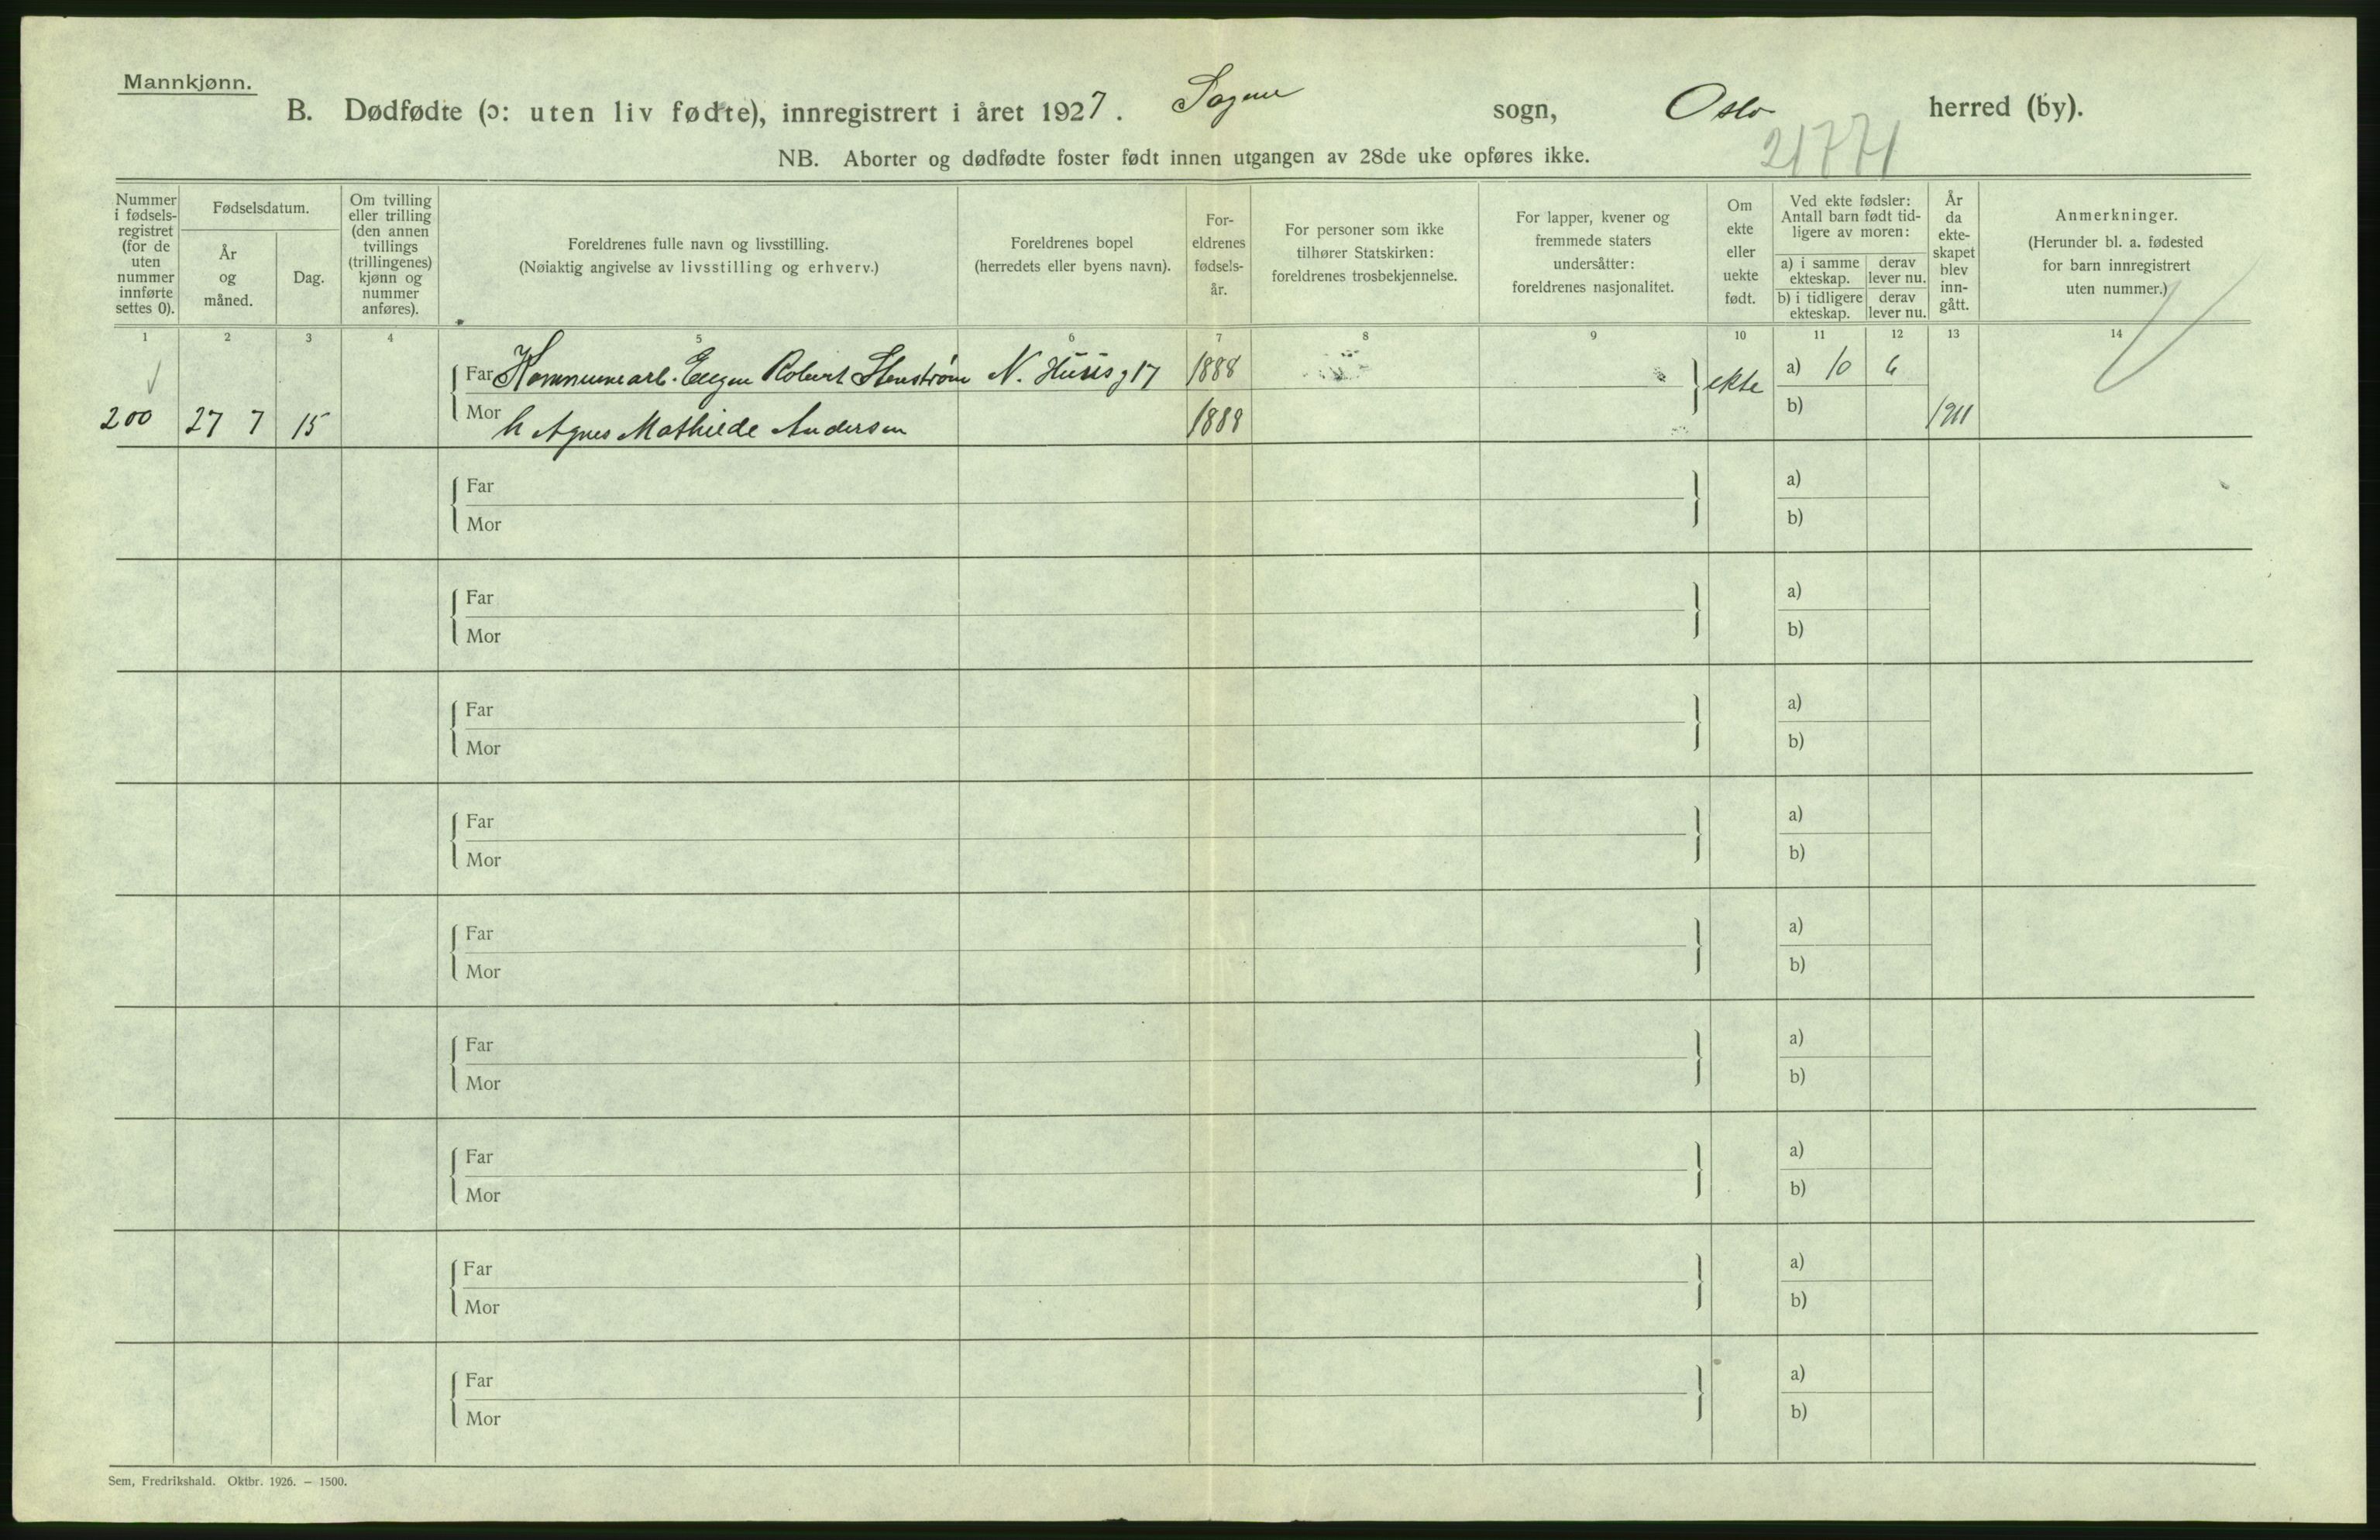 Mannkjønn.
B. Dødfødte (ɔ: uten liv fødte), innregistrert i året 1927. Sagene sogn, Oslo herred (by).
21771
NB. Aborter og dødfødte foster født innen utgangen av 28de uke opføres ikke.
Nummer
i fødsels-
registret
(for de
uten
nummer
innførte
settes 0).
Fødselsdatum.
År
og
måned.
Dag.
Om tvilling
eller trilling
(den annen
tvillings
(trillingenes)
kjønn og
nummer
anføres).
Foreldrenes fulle navn og livsstilling.
(Nøiaktig angivelse av livsstilling og erhverv.)
Foreldrenes bopel
(herredets eller byens navn).
For-
eldrenes
fødsels-
år.
For personer som ikke
tilhører Statskirken:
foreldrenes trosbekjennelse.
For lapper, kvener og
fremmede staters
undersåtter:
foreldrenes nasjonalitet.
Om
ekte
eller
uekte
født.
Ved ekte fødsler:
Antall barn født tid-
ligere av moren:
a) i samme
ekteskap.
derav
lever nu.
b) i tidligere
ekteskap.
derav
lever nu.
År
da
ekte-
skapet
blev
inn-
gått.
Anmerkninger.
(Herunder bl. a. fødested
for barn innregistrert
uten nummer.)
1 2 3 4 5 6 7 8 9 10 11 12 13 14
Far Kommunearb. Eugen Robert Stenstrøm N. Huus g 17 1888 ekte a) 10 6
200 27 7 15 Mor h Agnes Mathilde Andersen 1888 b) 1911
Far a)
Mor b)
Far a)
Mor b)
Far a)
Mor b)
Far a)
Mor b)
Far a)
Mor b)
Far a)
Mor b)
Far a)
Mor b)
Far a)
Mor b)
Far a)
Mor b)
Sem, Fredrikshald. Oktbr. 1926. – 1500.